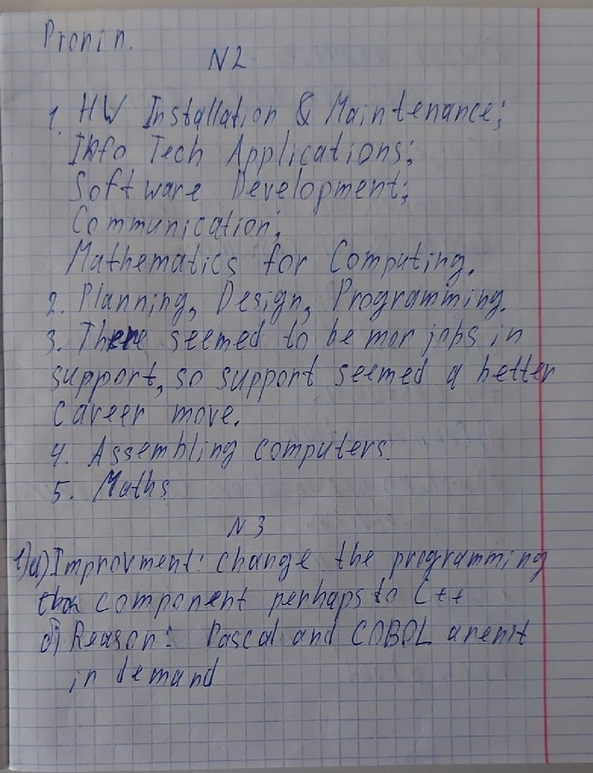 Pronin.
N2
1. HW Installation & Maintenance;
Info Tech Applications;
Software Development;
Communication;
Mathematics for Computing.
2. Planning, Design, Programming.
3. There seemed to be mor jobs in
support, so support seemed a better
career move.
4. Assembling computers.
5. Maths
N3
1) a) Improvment: change the programming
component perhaps to C++
б) Reason: Pascal and COBOL arent
in demand